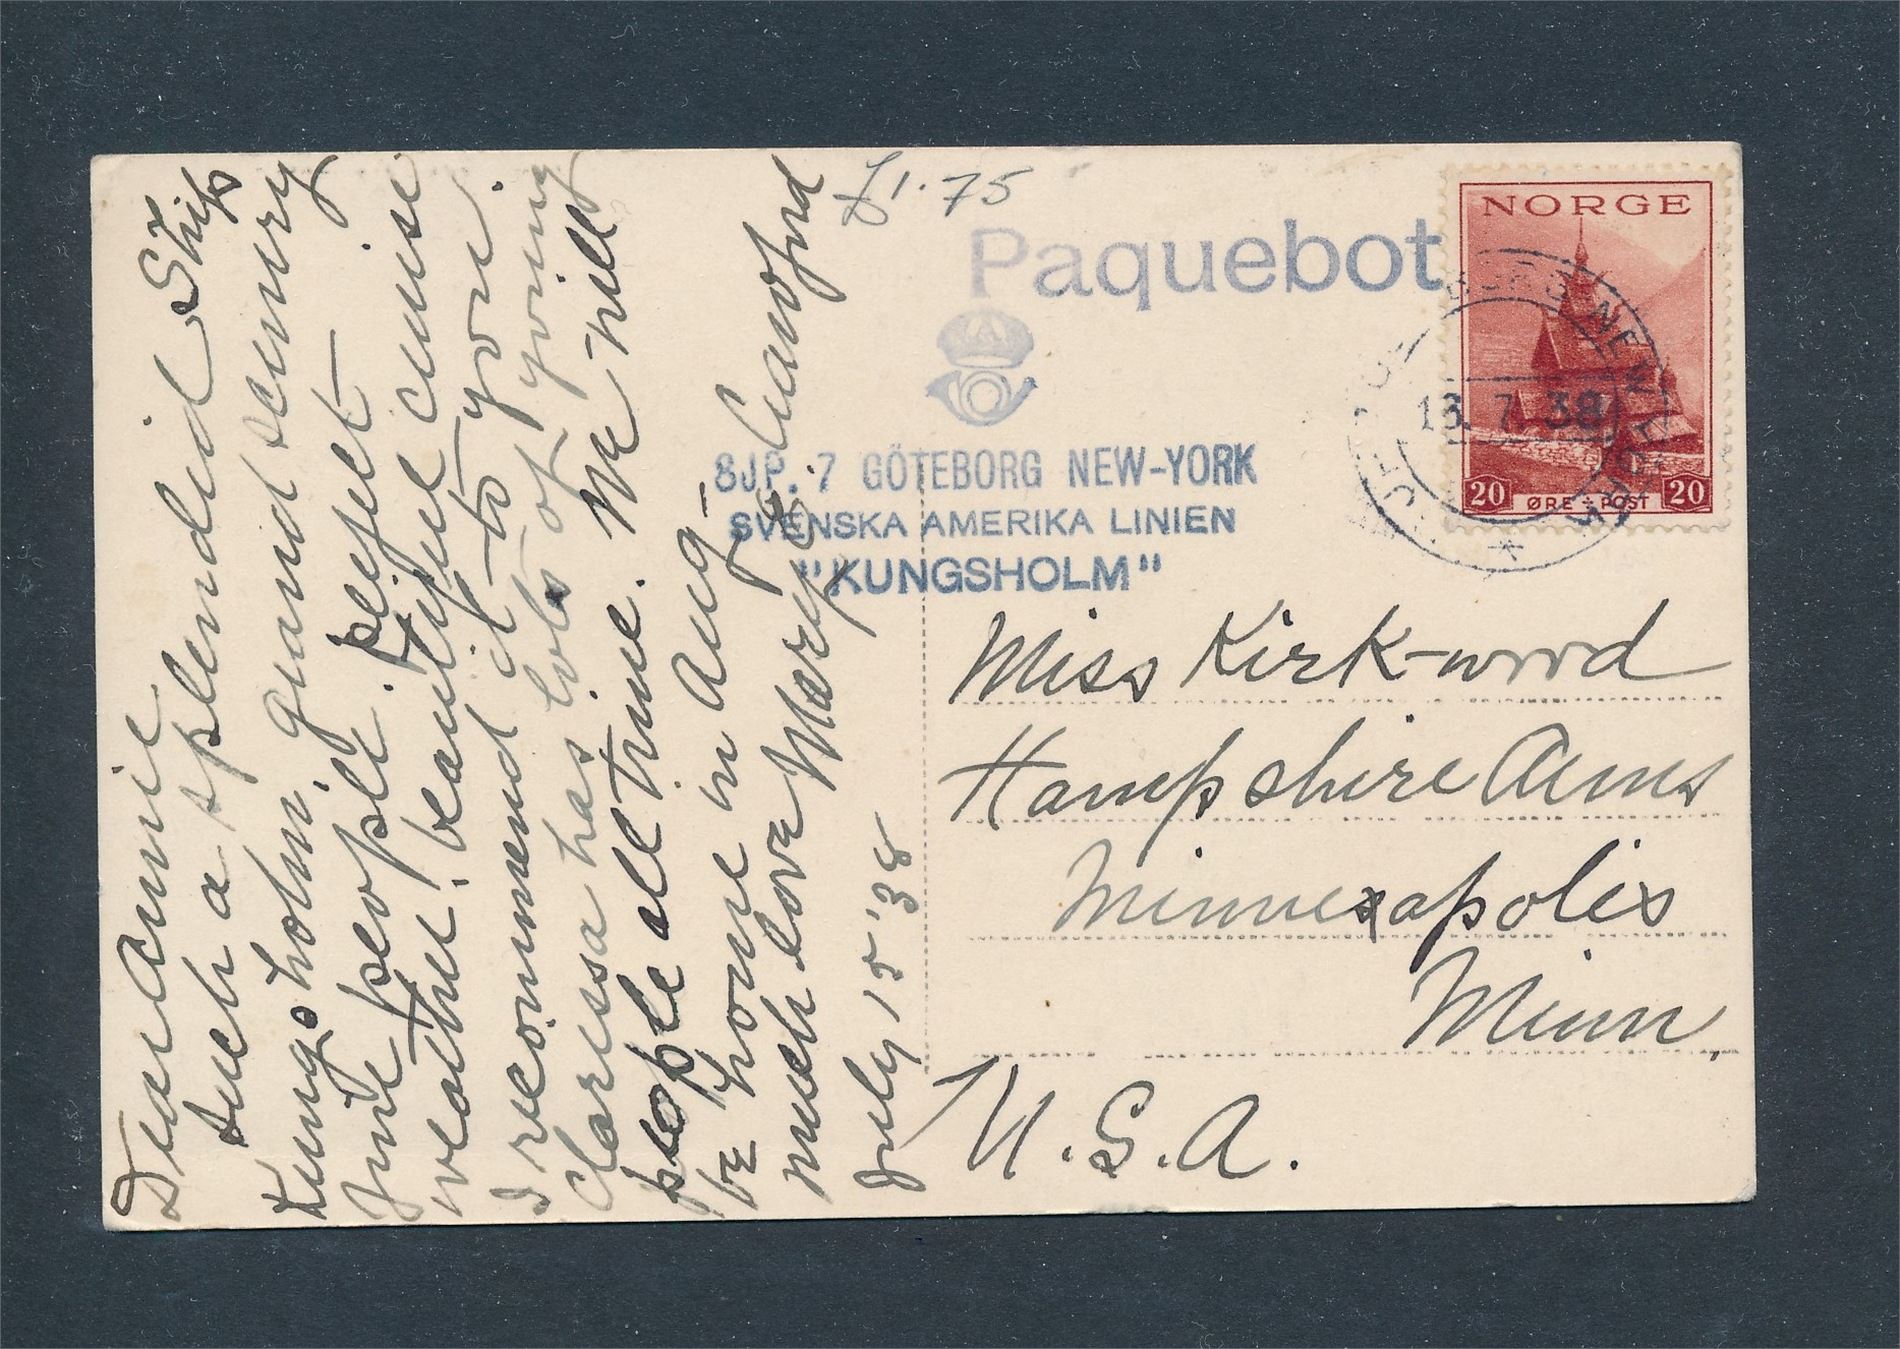 Dear Annie
Such a splendid Ship
Kungsholm, grand scenery
fine people. perfect
weather. beautiful cruise
I recommend it to you.
Clarissa has lots of young
people all time. We will
be home in Aug-
much love Mary
July 15 '38
1.75
Paquebot
8JP. 7 GÖTEBORG NEW-YORK
SVENSKA AMERIKA LINIEN
"KUNGSHOLM"
NORGE
20 ØRE ÷ POST 20
GÖTEBORG NEW YORK
7. 38
Miss Kirk-wood
Hampshire Arms
Minneapolis
Minn.
U.S.A.